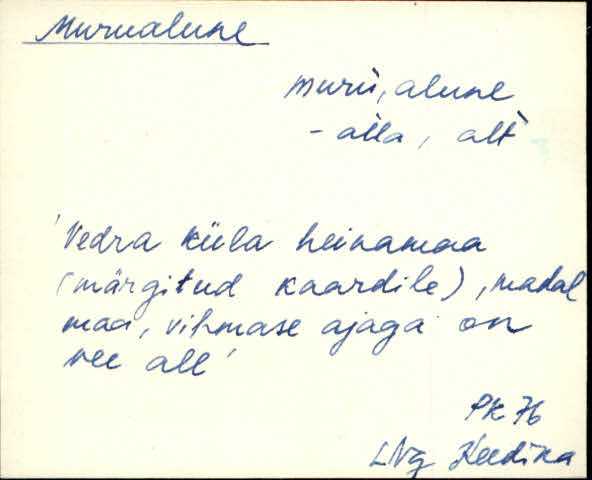 Murualune
muru, alune
- alla, alt
'Vedra küla heinamaa
(märgitud kaardile), madal
maa, vihmase ajaga on
vee all'
PK 76
LNg